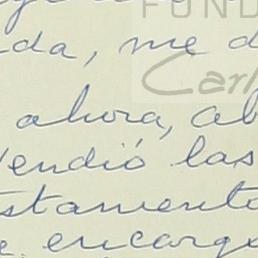 FUND
da, me d
Carl
ahora, ab
vendió las
stamento
encarge